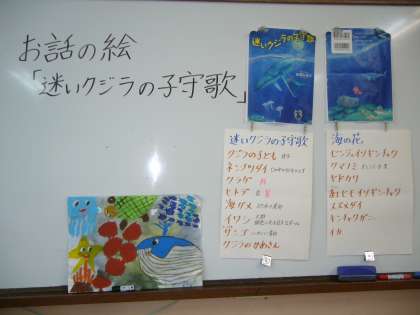 お話の絵
「迷いクジラの子守歌」
迷いクジラの子守歌
迷いクジラの子守歌
クジラの子ども
ネンブツダイ
クラゲ
ヒトデ
海ガメ
イワシ
サンゴ
クジラのかあさん
海の花
センジュイソギンチャク
クマノミ
ヤドカリ
ベニヒモイソギンチャク
スズメダイ
キンチャクガニ
イカ